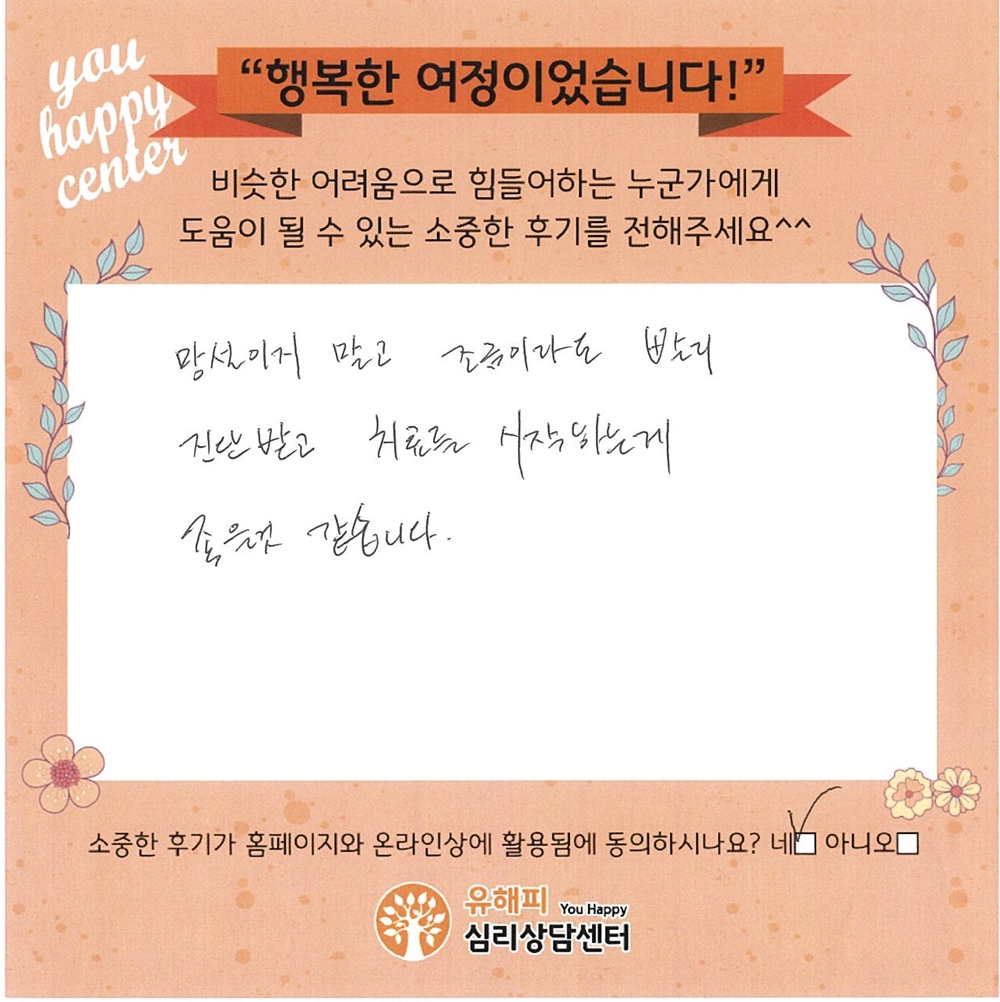 you
happy
center
“행복한 여정이었습니다!”
비슷한 어려움으로 힘들어하는 누군가에게
도움이 될 수 있는 소중한 후기를 전해주세요^^
망설이지 말고 조금이라도 빨리
진단받고 치료를 시작하는게
좋은것 같습니다.
소중한 후기가 홈페이지와 온라인상에 활용됨에 동의하시나요? 네 아니오
유해피 You Happy
심리상담센터